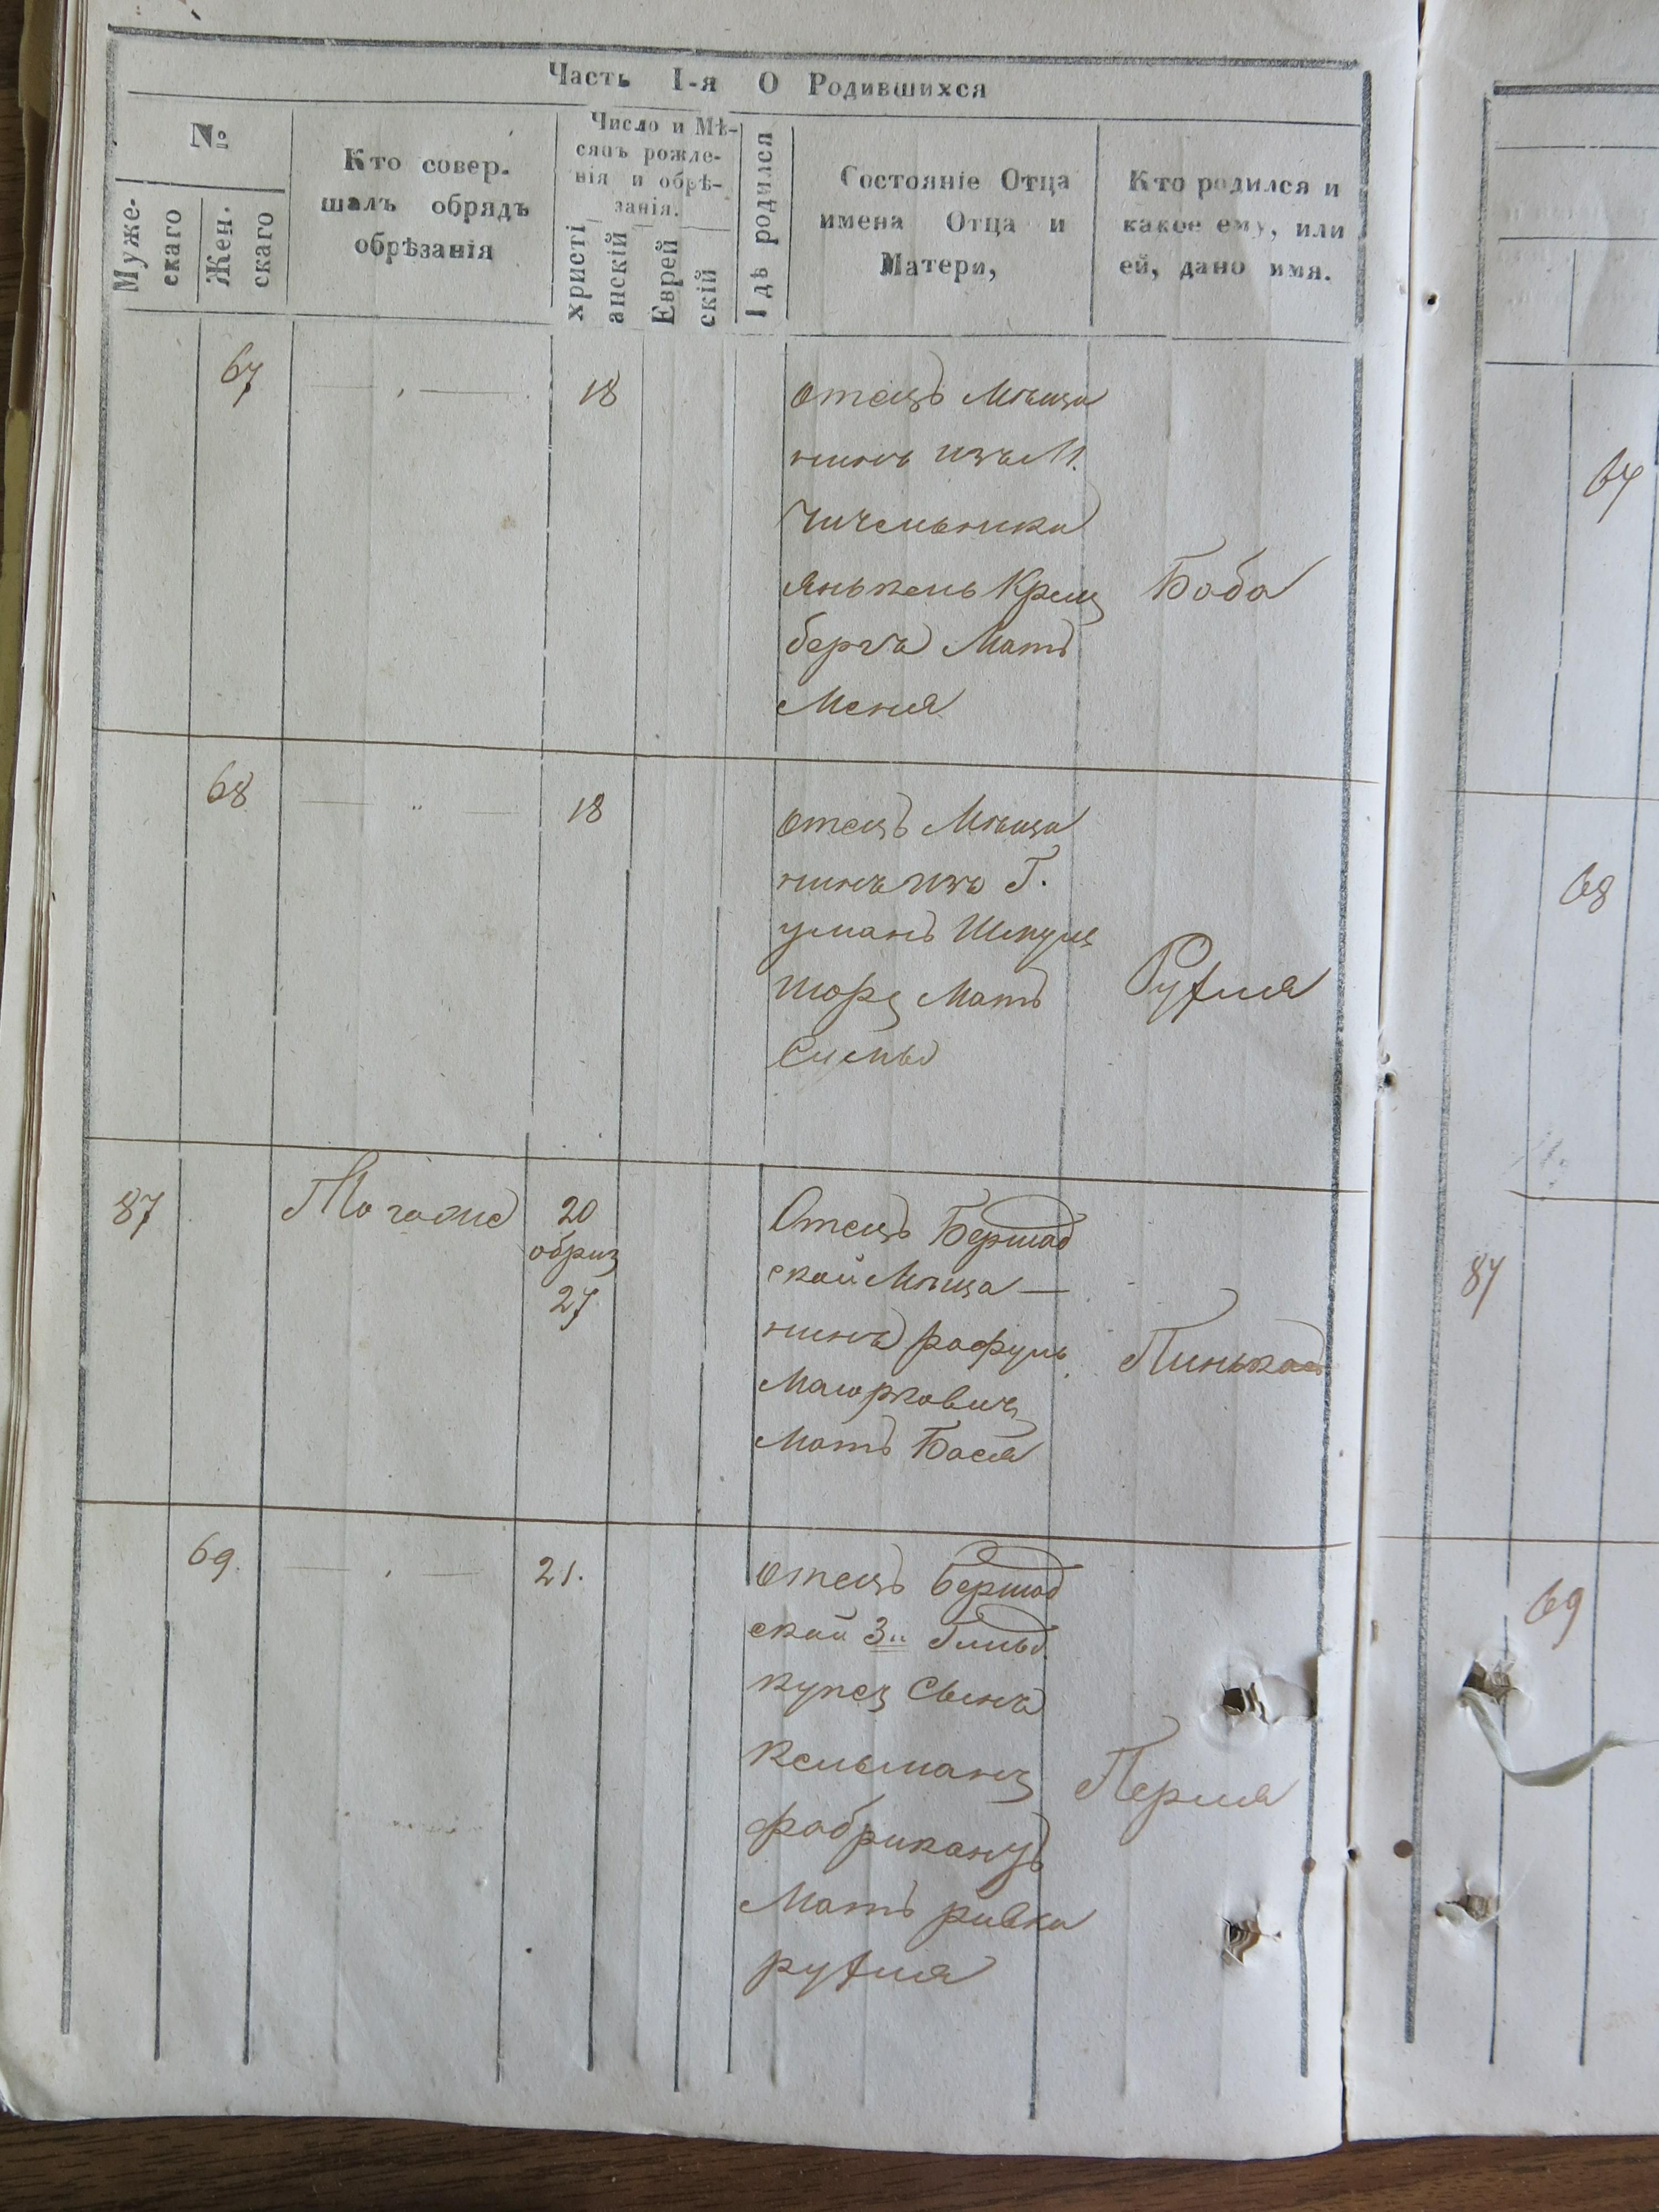 Часть I-я О Родившихся
№
Муже-
скаго
Жен.
скаго
Кто совер-
шалъ обрядъ
обрѣзанія
Число и Мѣ-
сяцъ рожде-
нія и обрѣ-
занія.
христі
анскій
Еврей
скій
Гдѣ родился
Состояніе Отца
имена Отца и
Матери,
Кто родился и
какое ему, или
ей, дано имя.
67
18
отецъ Мѣща
нинъ изъ М.
Чичельника
Янькель Криц
бергъ Мать
Меня
Боба
68
18
отецъ Мѣща
нинъ изъ Г.
умань
шорц Мать
Рухля
87
20
обриз
27
Отецъ Бершад
ской Мѣща—
нинъ рафуль
Маюркович
Мать Бася
Пинькас
69.
21.
отецъ бершад
ской 3й Гильд.
купец Сынъ
Кельманъ
фабрикантъ
Мать ривка
рухля
Перля
67
68
87
69